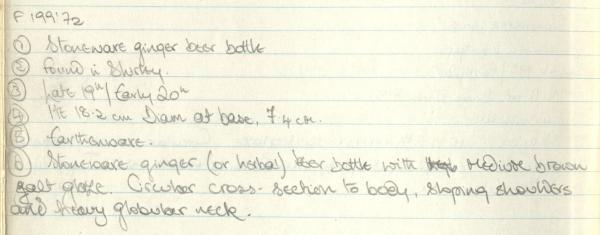 F 199'72
① Stoneware ginger beer bottle
② Found in Shirley.
③ Late 19th/Early 20th
④ Ht 18.2 cm Diam at base, 7.4 cm.
⑤ Earthenware.
⑥ Stoneware ginger (or herbal) beer bottle with medium brown
salt glaze. Circular cross-section to body, sloping shoulders
and heavy globular neck.